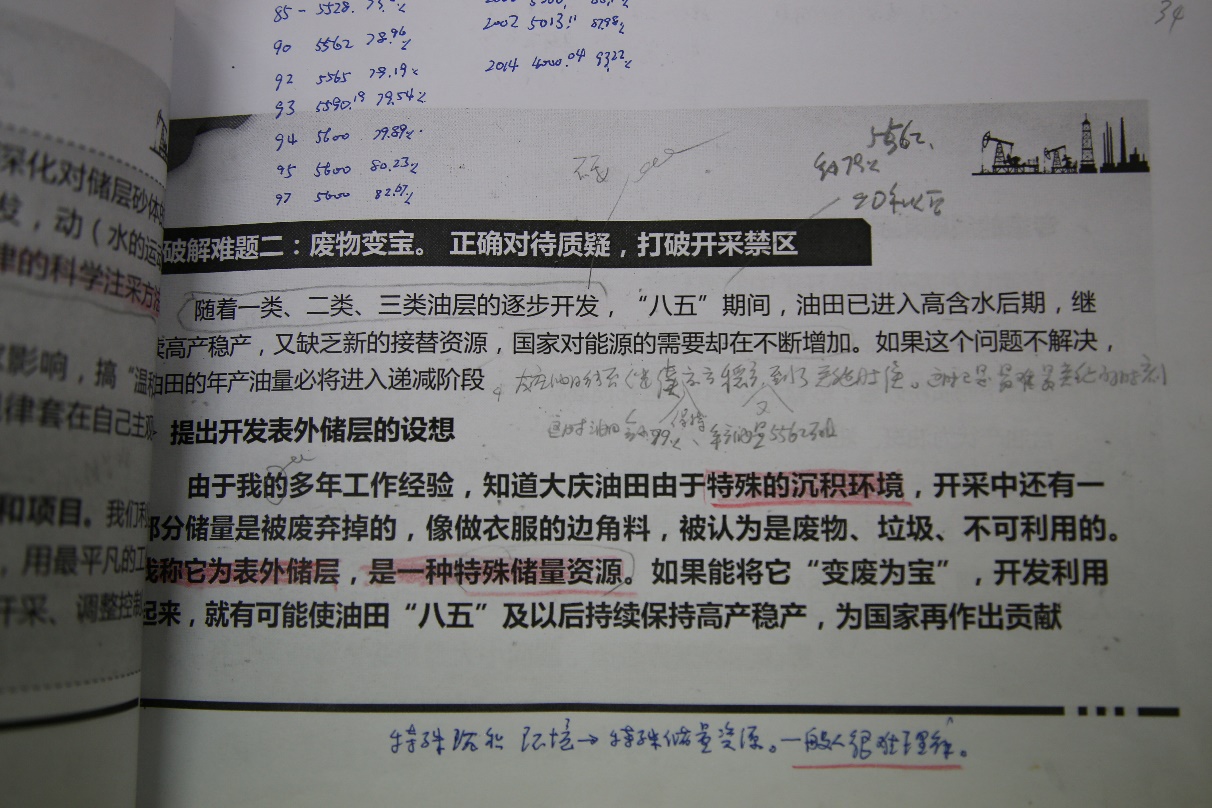 34
85 - 5528.
90 5562 78.96%
92 5565 79.19%
93 5590.19 79.54%
94 5600 79.89%
95 5600 80.23%
97 5600 82.67%
2002 5013.11 87.98%
2014 4000.04
5562
约79%
深化对储层砂体
发，动（水的运
律的科学注采方法
影响，搞“温和
律套在自己主观
和项目。我们利
，用最平凡的工
开采、调整控制
破解难题二：废物变宝。 正确对待质疑，打破开采禁区
随着一类、二类、三类油层的逐步开发，“八五”期间，油田已进入高含水后期，继
续高产稳产，又缺乏新的接替资源，国家对能源的需要却在不断增加。如果这个问题不解决，
油田的年产油量必将进入递减阶段
提出开发表外储层的设想
这时油田 79% 保持 年产油量5562万吨
由于我的多年工作经验，知道大庆油田由于特殊的沉积环境，开采中还有一
部分储量是被废弃掉的，像做衣服的边角料，被认为是废物、垃圾、不可利用的。
我称它为表外储层，是一种特殊储量资源。如果能将它“变废为宝”，开发利用
起来，就有可能使油田“八五”及以后持续保持高产稳产，为国家再作出贡献
特殊沉积 环境→特殊储量资源。一般人很难理解。